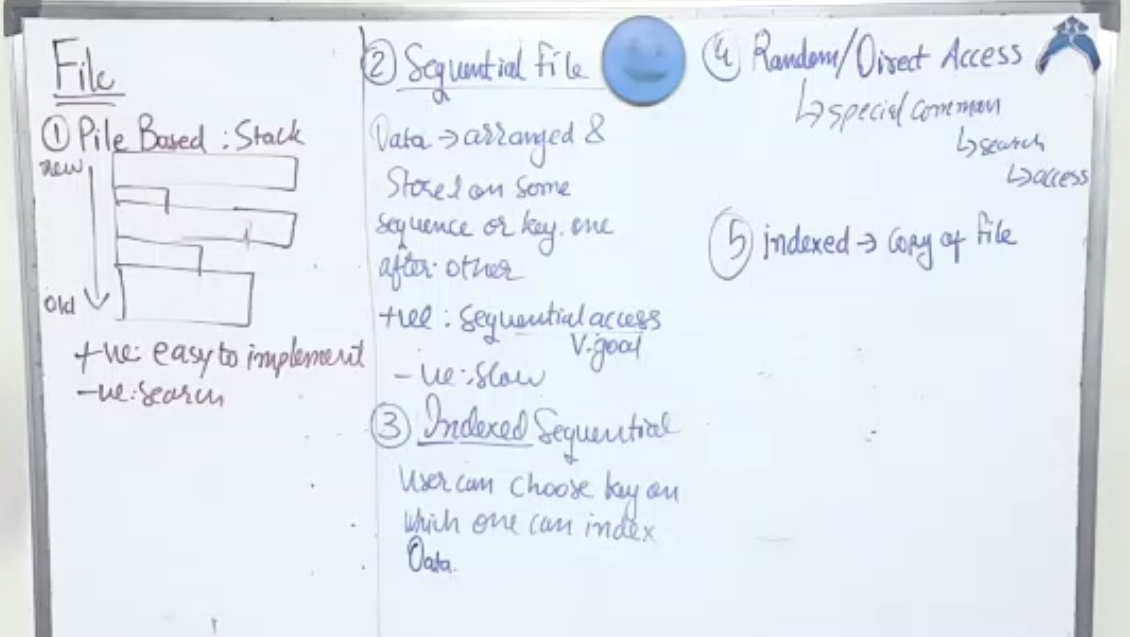 File
① Pile Based : Stack
new
old
+ve: easy to implement
-ve: search
② Sequential File
Data → arranged &
Stored on some
sequence or key. one
after other
+ve : Sequential access
V. good
- ve : slow
③ Indexed Sequential
User can choose key on
which one can index
Data.
④ Random/Direct Access
↳ special comman
↳ search
↳ access
⑤ indexed → copy of file